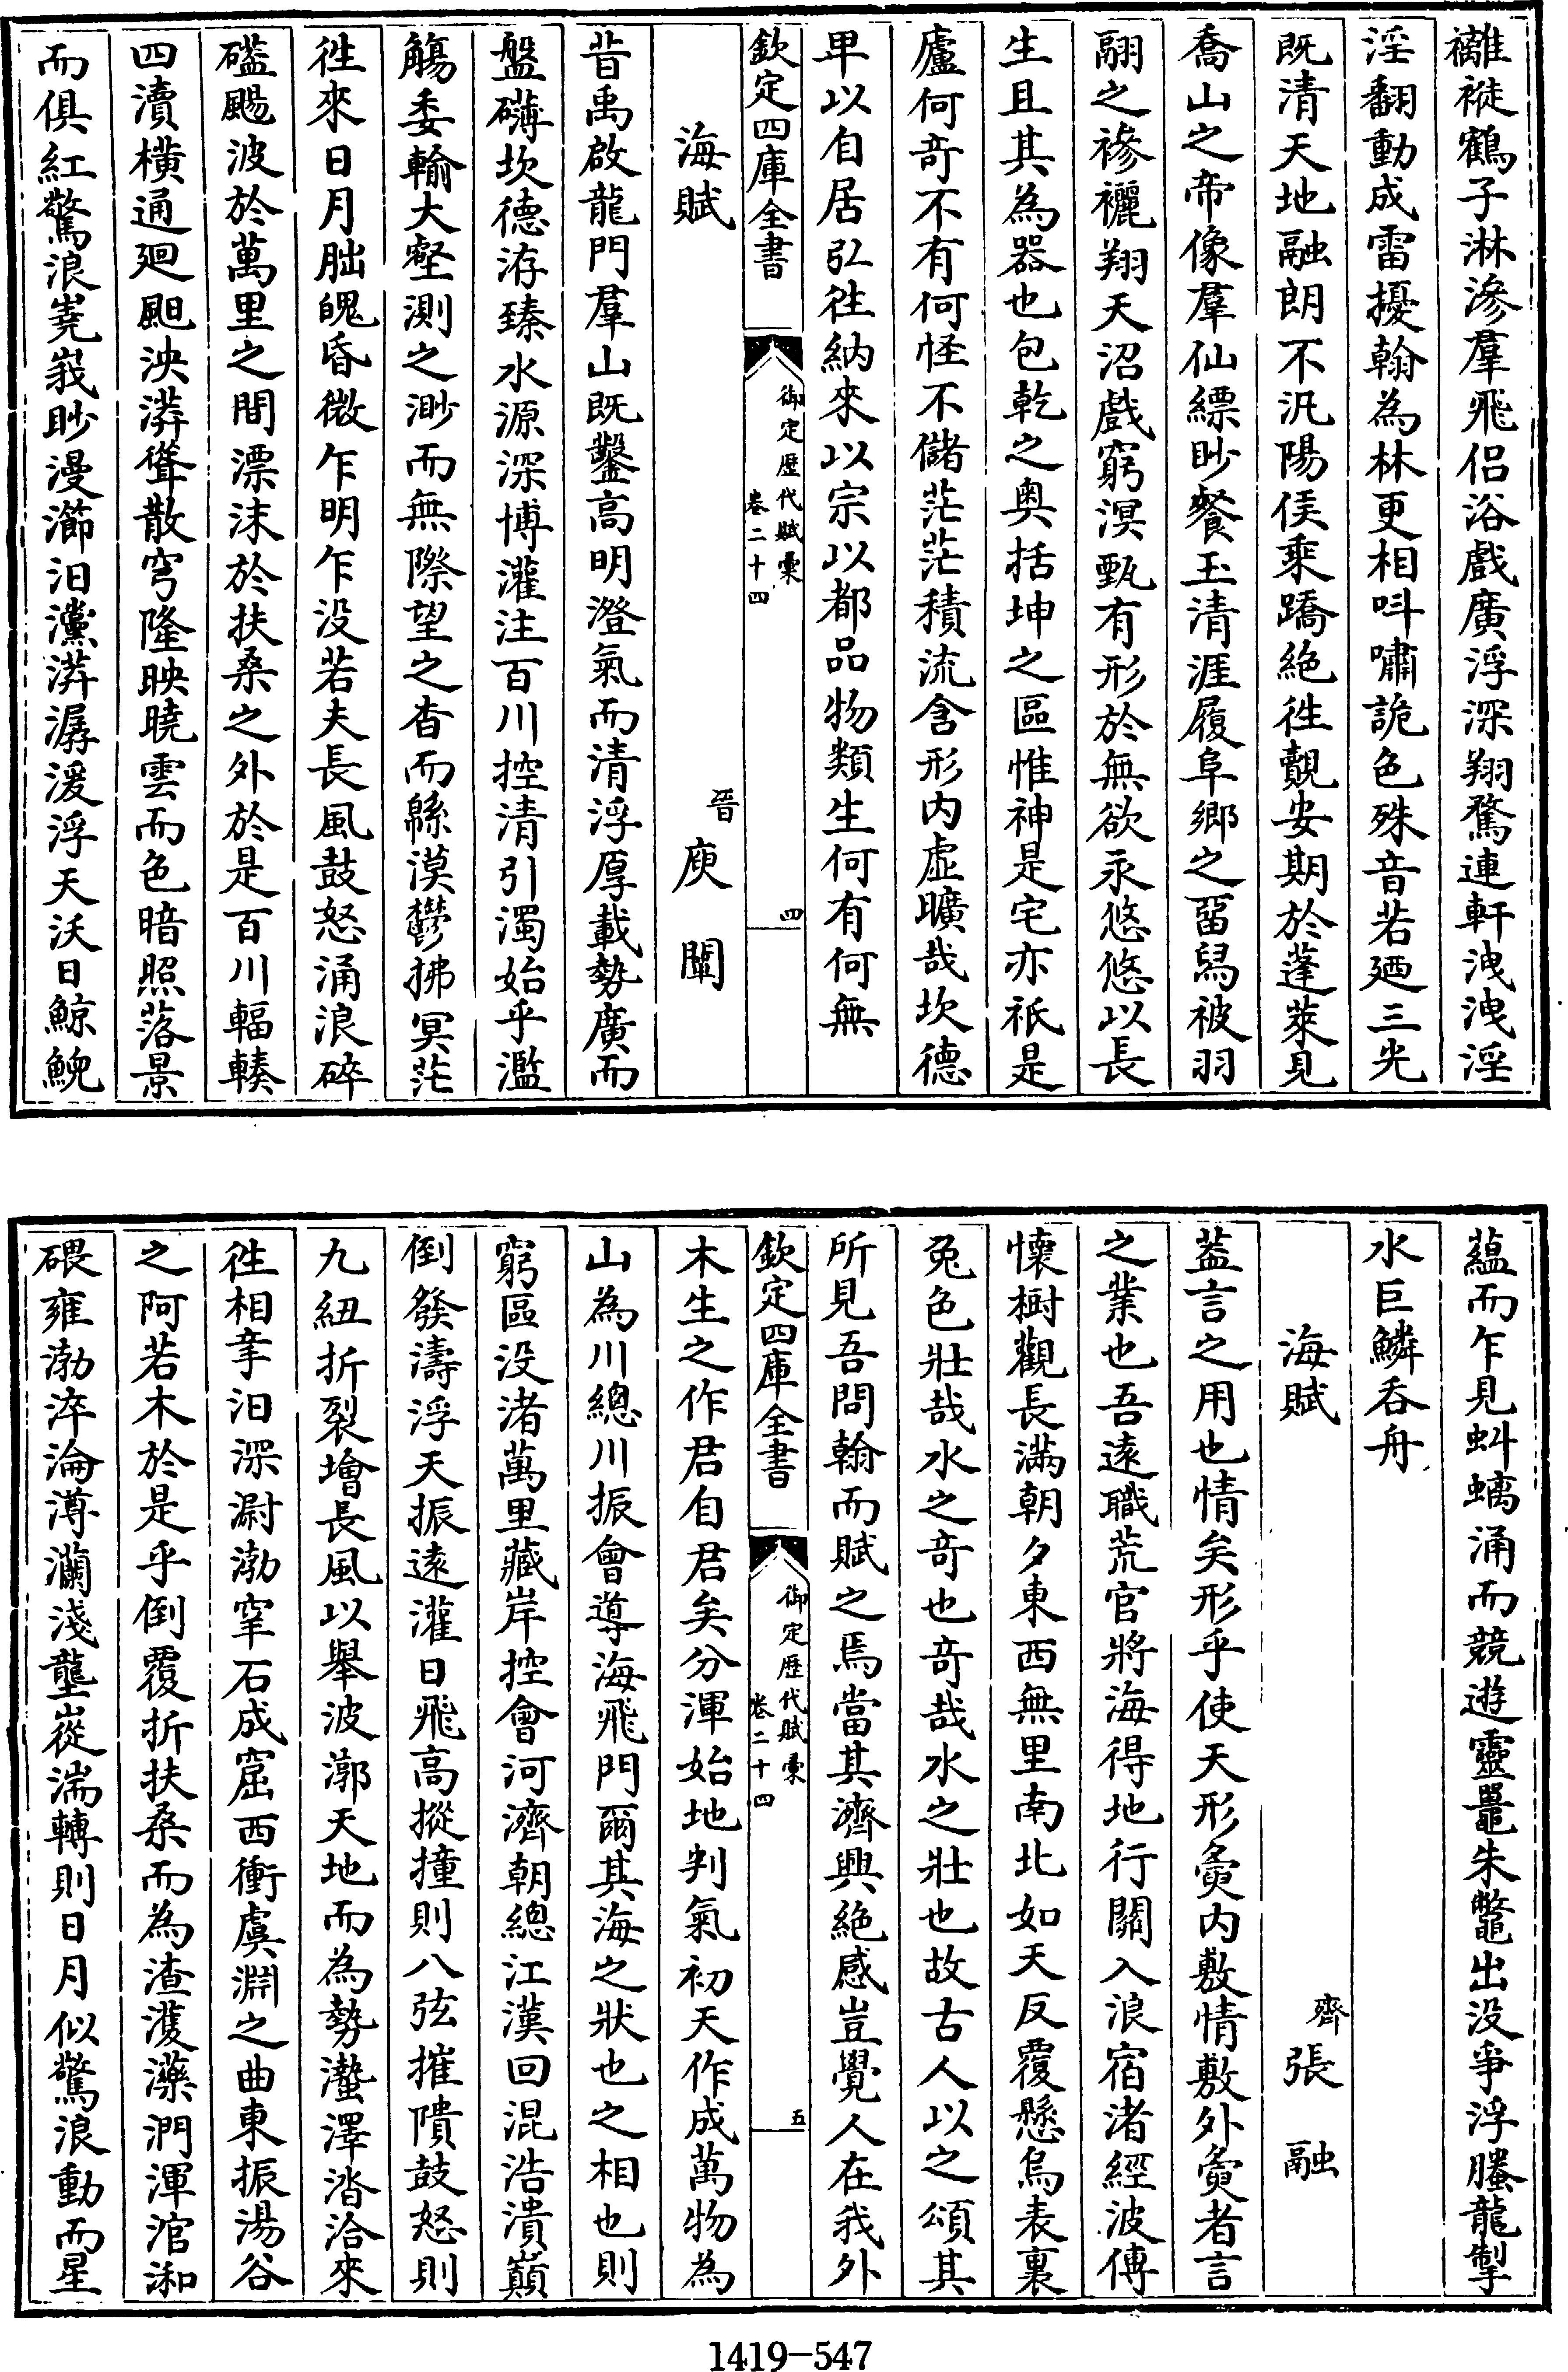 褵褷鶴子淋滲羣飛侣浴戲廣浮深翔鶩連軒洩洩淫
淫翻動成雷擾翰為林更相呌嘯詭色殊音若廼三光
既清天地融朗不汎陽侯乘蹻絶徃覿安期於蓬萊見
喬山之帝像羣仙縹眇餐玉清涯履阜鄉之留舄被羽
翮之襂纚翔天沼戲窮溟甄有形於無欲永悠悠以長
生且其為器也包乾之奥括坤之區惟神是宅亦祇是
廬何竒不有何怪不儲茫茫積流含形内虛曠哉坎德
卑以自居弘徃納來以宗以都品物類生何有何無
欽定四庫全書
御定歴代賦彚
卷二十四
四
海賦
晉
庾闡
昔禹啟龍門羣山既鑿高明澄氣而清浮厚載勢廣而
盤礴坎德洊臻水源深博灌注百川控清引濁始乎濫
觴委輸大壑測之渺而無際望之杳而綿漠鬱拂冥茫
徃來日月朏魄昏微乍明乍没若夫長風鼓怒涌浪碎
礚颺波於萬里之間漂沫於扶桑之外於是百川輻輳
四瀆橫通廻䫻泱漭聳散穹隆映曉雲而色暗照落景
而俱紅驚浪嶤峩眇漫㴙汩瀇漭潺湲浮天沃日鯨鯢
藴而乍見虯螭涌而競遊靈鼉朱鼈出没爭浮螣龍掣
水巨鱗吞舟
海賦
齊
張融
葢言之用也情矣形乎使天形寅内敷情敷外寅者言
之業也吾遠職荒官將海得地行關入浪宿渚經波傅
懷樹觀長滿朝夕東西無里南北如天反覆懸烏表裏
兔色壯哉水之竒也竒哉水之壯也故古人以之頌其
所見吾問翰而賦之焉當其濟興絶感豈覺人在我外
欽定四庫全書
御定歴代賦彚
卷二十四
五
木生之作君自君矣分渾始地判氣初天作成萬物為
山為川總川振會導海飛門爾其海之狀也之相也則
窮區没渚萬里藏岸控會河濟朝總江漢回混浩潰巔
倒發濤浮天振遠灌日飛高摐撞則八弦摧隤鼓怒則
九紐折裂㙰長風以舉波漷天地而為勢灪澤㳫洽來
徃相𢫦汩㴱㶑渤窣石成窟西衝虞淵之曲東振湯谷
之阿若木於是乎倒覆折扶桑而為渣濩濼㵍渾涫㴜
碨雍渤淬淪潯灡淺壟嵸湍轉則日月似驚浪動而星
1419-547